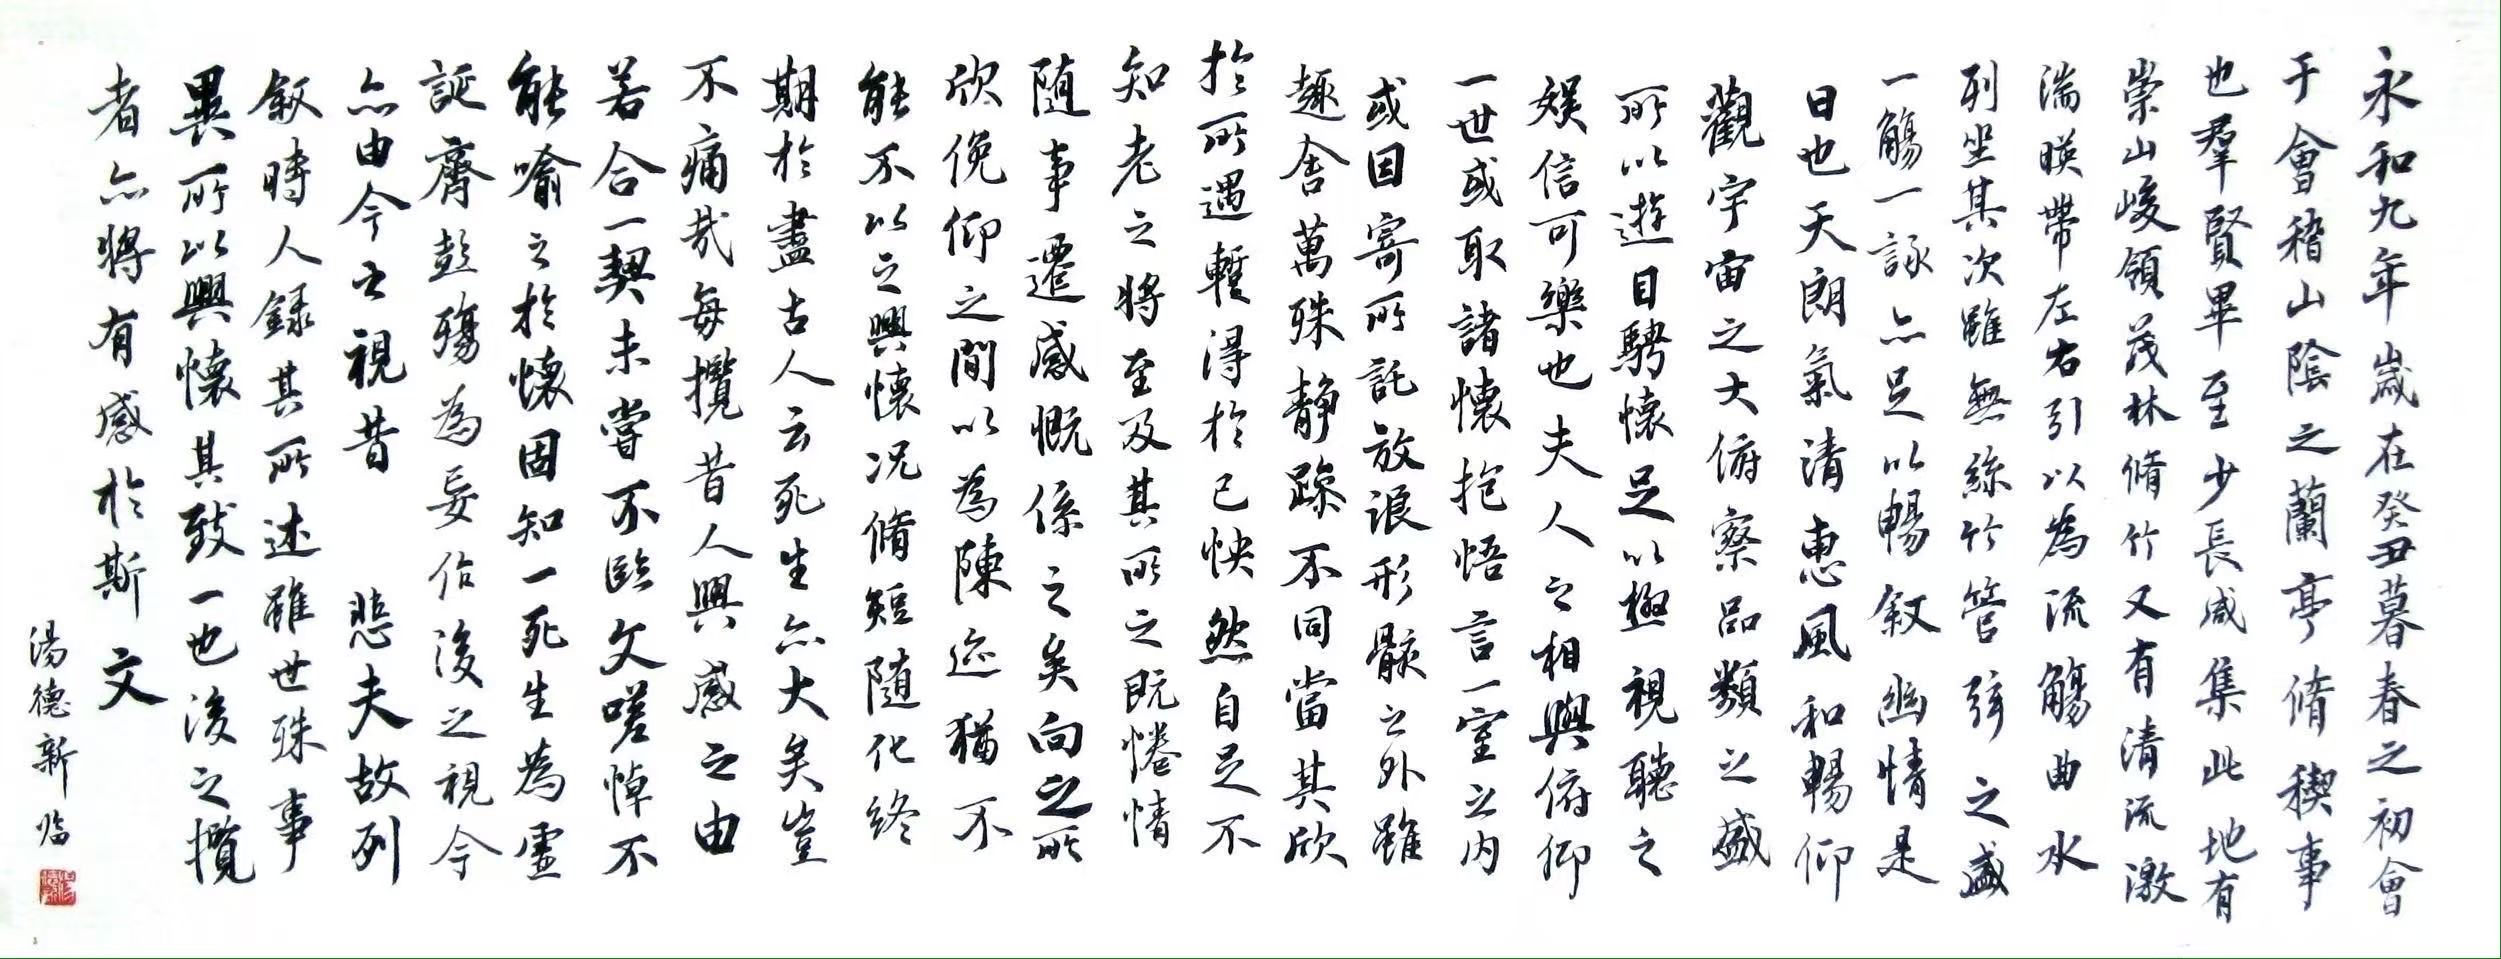 永和九年歲在癸丑暮春之初會
于會稽山陰之蘭亭脩稧事
也羣賢畢至少長咸集此地有
崇山峻領茂林脩竹又有清流激
湍暎帶左右引以為流觴曲水
列坐其次雖無絲竹管弦之盛
一觴一詠亦足以暢叙幽情是
日也天朗氣清惠風和暢仰
觀宇宙之大俯察品類之盛
所以遊目騁懷足以極視聽之
娛信可樂也夫人之相與俯仰
一世或取諸懷抱悟言一室之内
或因寄所託放浪形骸之外雖
趣舍萬殊静躁不同當其欣
於所遇暫得於己怏然自足不
知老之將至及其所之既惓情
随事遷感慨係之矣向之所
欣俛仰之間以為陳迹猶不
能不以之興懷況脩短随化終
期於盡古人云死生亦大矣豈
不痛哉每攬昔人興感之由
若合一契未嘗不臨文嗟悼不
能喻之於懷固知一死生為虛
誕齊彭殤為妄作後之視今
亦由今之視昔 悲夫故列
叙時人録其所述雖世殊事
異所以興懷其致一也後之攬
者亦將有感於斯文
湯德新临